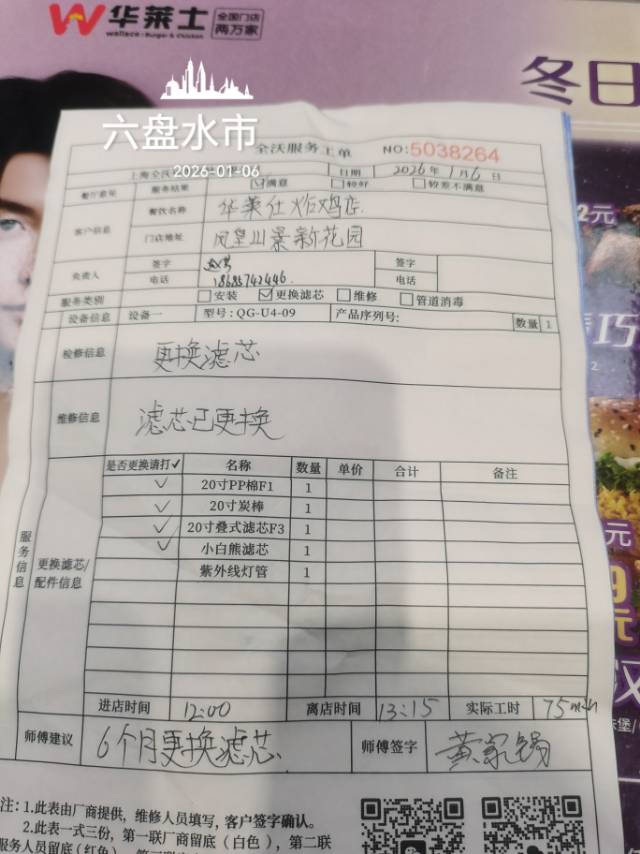 华莱士
wallace·Burger&Chicken
全国门店
两万家
冬日
六盘水市
2026-01-06
全沃服务工单 NO:5038264
上海全沃 日期 2026年1月6日
餐厅意见 服务结果 ☑满意 □较好 □较差不满意
客户信息 餐饮名称 华莱仕炸鸡店
门店地址 凤皇山景新花园
负责人 签字 签字
电话 18685742446 电话
服务类别 □安装 ☑更换滤芯 □维修 □管道消毒
设备信息 设备一 型号:QG-U4-09 产品序列号: 数量 1
检修信息 更换滤芯
维修信息 滤芯已更换
服务信息 更换滤芯/配件信息
是否更换请打✓ 名称 数量 单价 合计 备注
✓ 20寸PP棉F1 1
✓ 20寸炭棒 1
✓ 20寸叠式滤芯F3 1
✓ 小白熊滤芯 1
紫外线灯管 1
进店时间 12:00 离店时间 13:15 实际工时 75min
师傅建议 6个月更换滤芯 师傅签字 黄家锅
注:1.此表由厂商提供,维修人员填写,客户签字确认。
2.此表一式三份,第一联厂商留底(白色),第二联
服务人员留底(红色)
2元
巧
元
9
元
汉